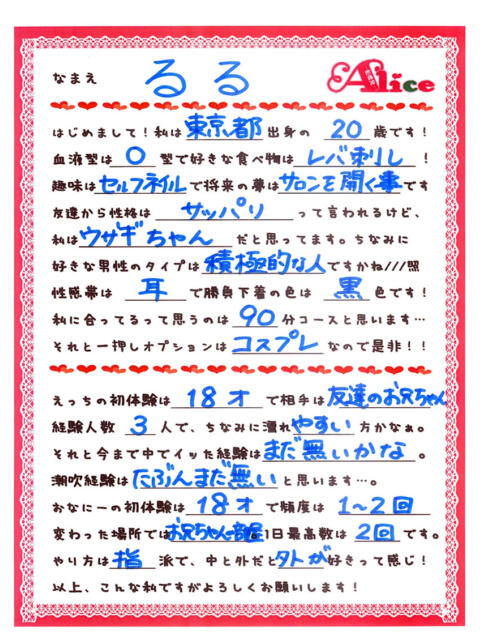 なまえ るる Alice
はじめまして！私は東京都出身の 20 歳です！
血液型は O 型で好きな食べ物は レバ刺し ！
趣味はセルフネイルで将来の夢はサロンを開く事です
友達から性格は サッパリ って言われるけど、
私は ウサギちゃん だと思ってます。ちなみに
好きな男性のタイプは積極的な人ですかね///照
性感帯は 耳 で勝負下着の色は 黒 色です！
私に合ってるって思うのは 90 分コースと思います…
それと一押しオプションは コスプレ なので是非！！
えっちの初体験は 18才 で相手は友達のお兄ちゃん
経験人数 3 人で、ちなみに濡れやすい方かなぁ。
それと今まで中でイッた経験はまだ無いかな。
潮吹経験はたぶんまだ無いと思います…。
おなにーの初体験は 18才 で頻度は 1〜2回
変わった場所ではお兄ちゃんの部屋。1日最高数は 2回 です。
やり方は 指 派で、中と外だとタトが好きって感じ！
以上、こんな私ですがよろしくお願いします！